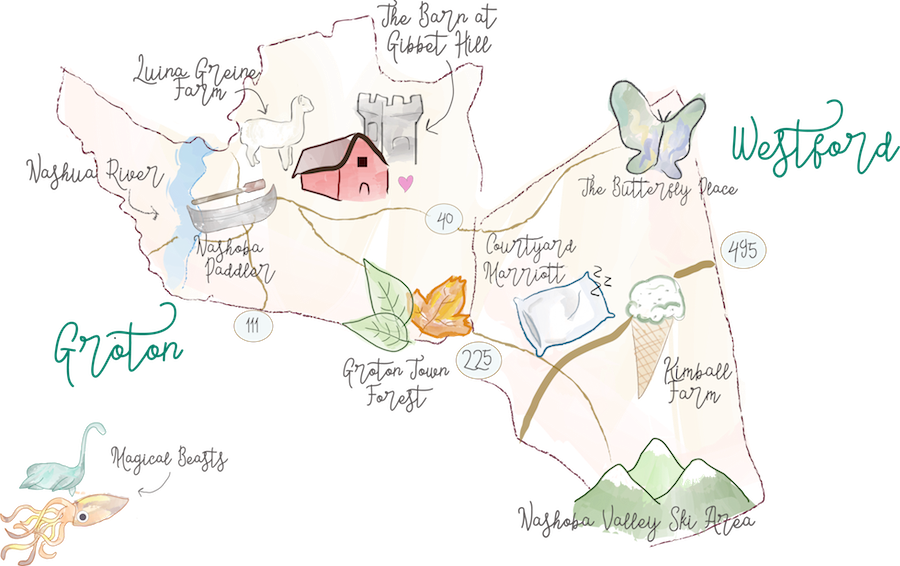 The Barn at
Gibbet Hill
Luina Greine
Farm
Westford
Nashua River
The Butterfly Place
40
Nashoba
Paddler
Courtyard
Marriott
z
z
z
495
111
Groton
225
Groton Town
Forest
Kimball
Farm
Magical Beasts
Nashoba Valley Ski Area